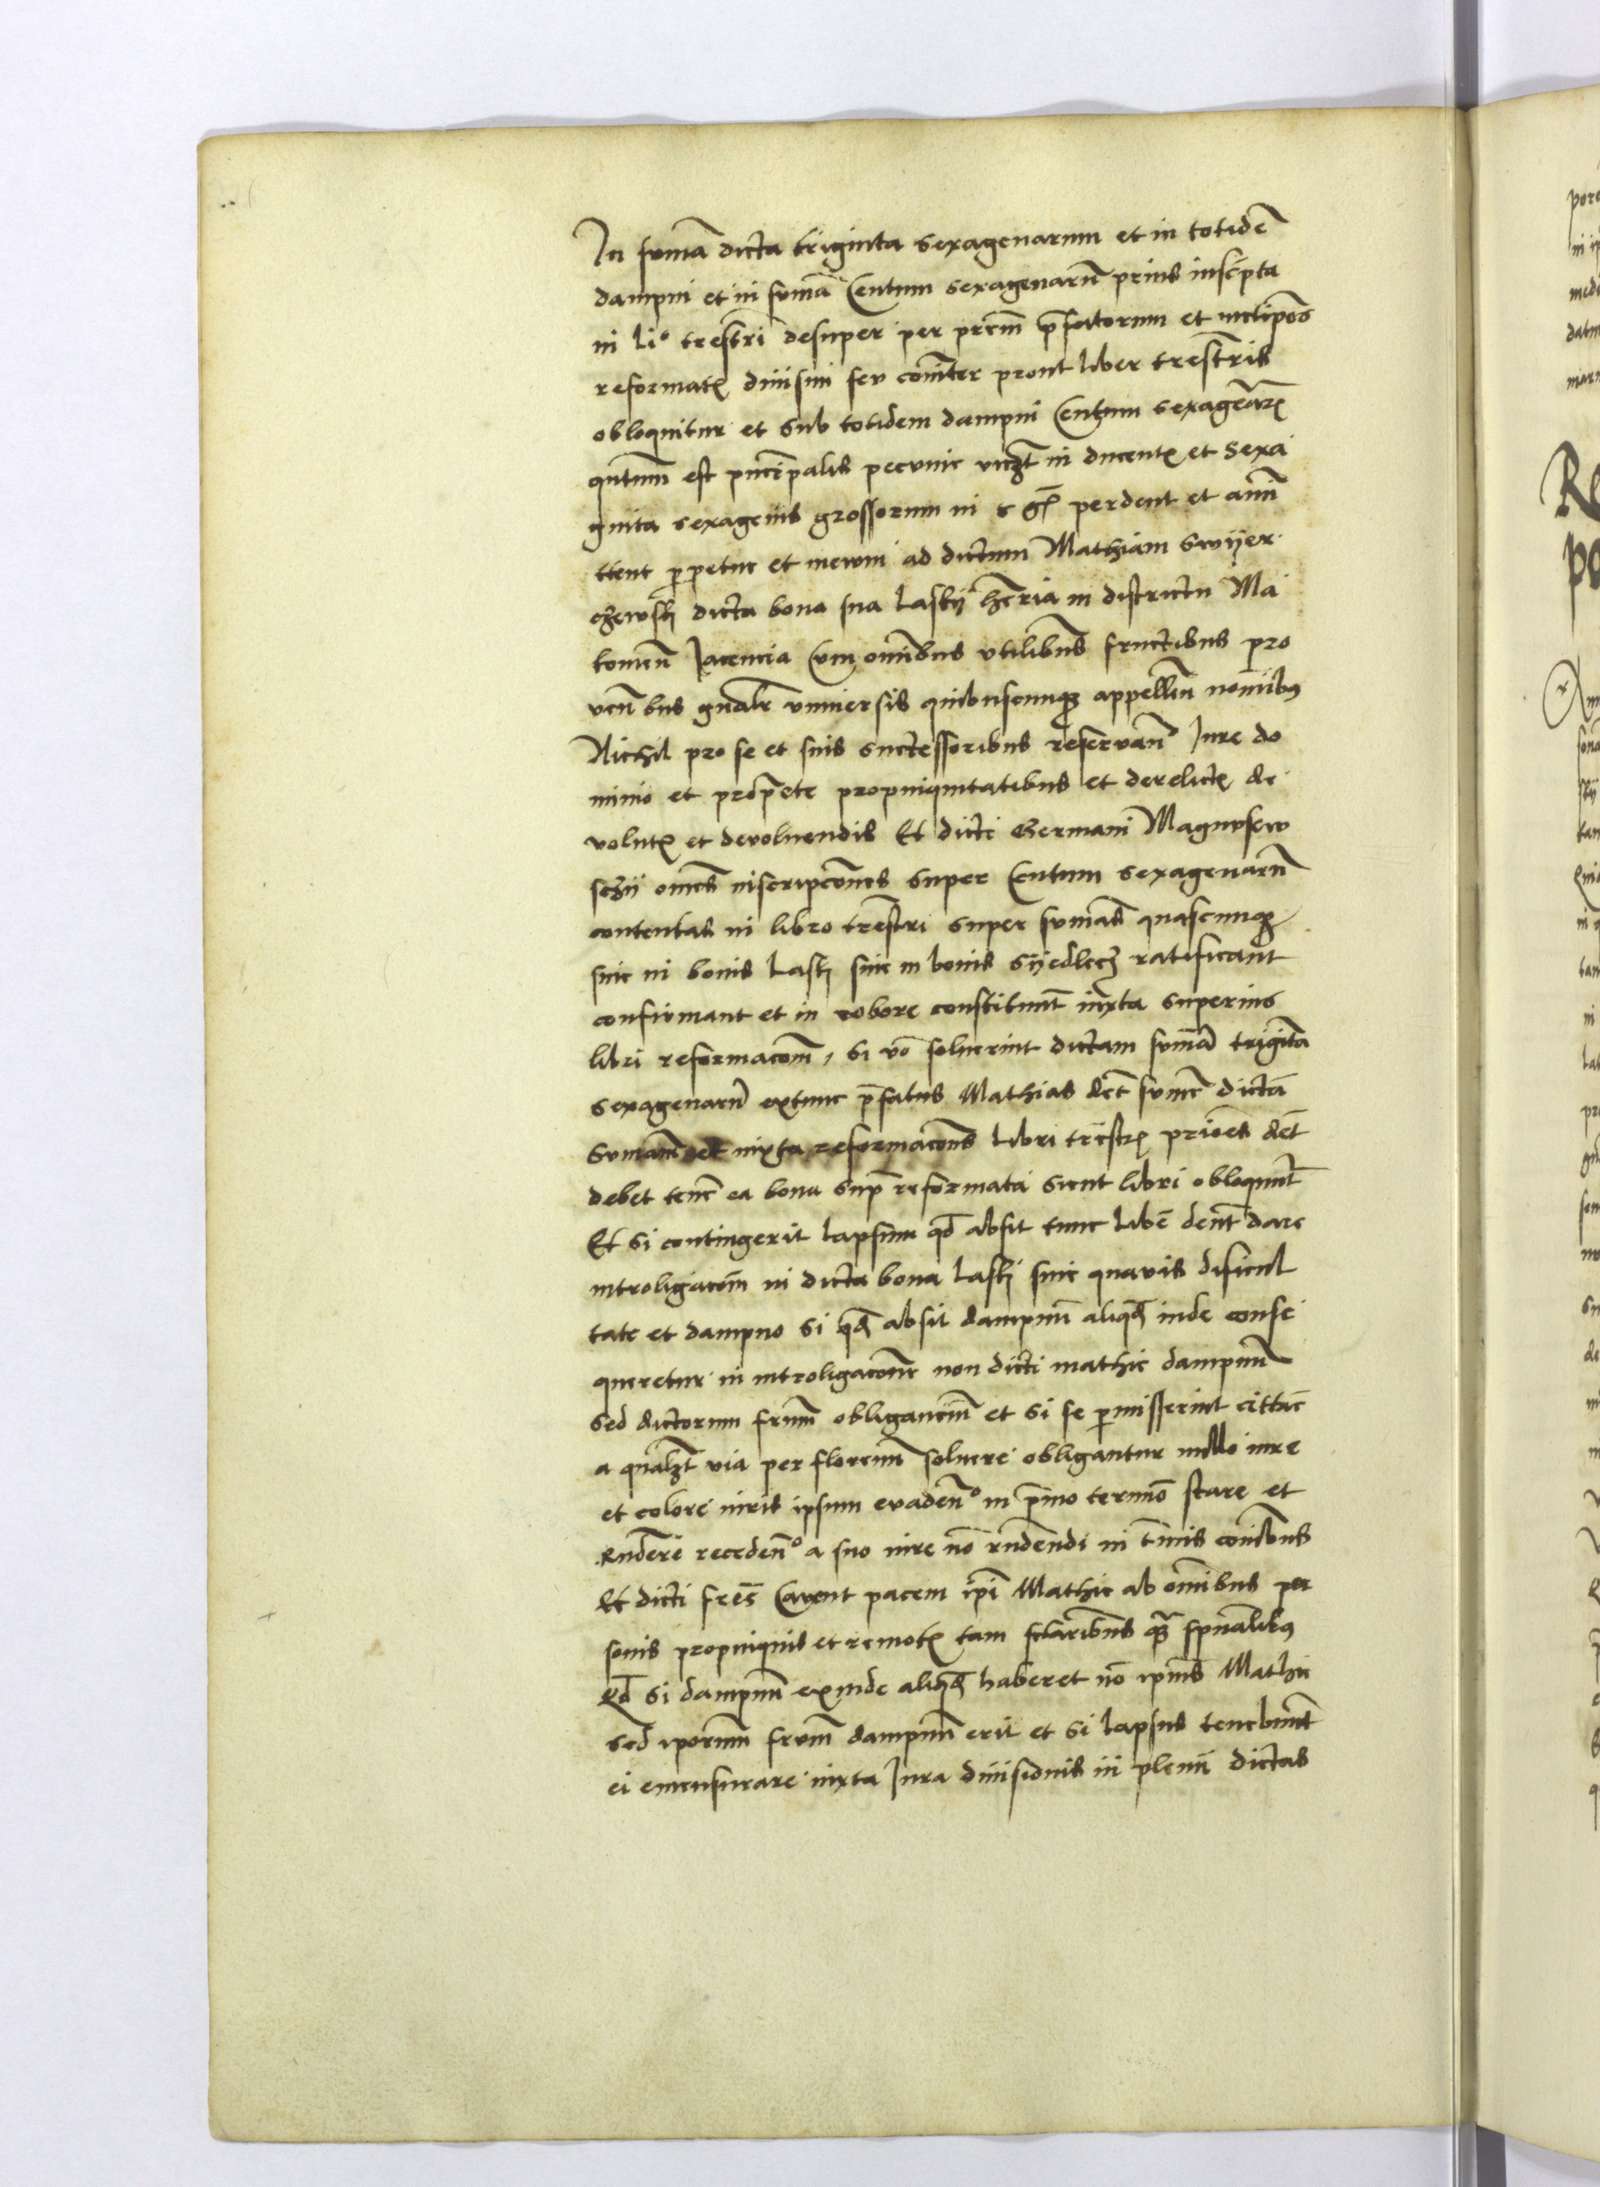 In sumā dicta triginta sexagenarum et in totidē
dampni et in sumā Centum sexagenarū prius inscīpta
in li° trēstri desuper per prēm p̄fatorum et
reformatꝫ diuisim seu cōniter prout liber trēstris
obloquitur et sub totidem dampni Centum sexagēarꝫ
qntum est pncipalis pecunie vꝫt in ducentꝫ et sexa
ginta sexagenis grossorum in perdent et ami
ttent perpetue et in ewm ad dictum Mathiam Swyer
czewsky dicta bona sua lasky hēria in districtu Ma
Jacencia Cum omībus vtilibus fructibus pro
ven bus gnalr vniuersis quibuscunqꝫ appellēn nomībꝰ
Nichil pro se et suis successoribus reseruan° Jure do
minio et prop̄ete propinquitatibus et derelictꝫ de
volutꝫ et deuoluendis Et dicti Germani Magnusew
sczy omēs inscripcōnes super Centum sexagenarū
contentas in libro trēstri super sumās quascunqꝫ
siue in bonis lasky siue in bonis Syedlecz ratificant
confirmant et in robore constituūt iuxta superius
libri reformacōm, Si vō soluerint dictam sumā triginta
sexagenarū extunc p̄fatus Mathias dēt sumē dictā
Sumam et iuxta reformacōns libri trēstrꝫ priōes dēt
debet tenē ea bona sup̄ reformata sicut libri obloquūt
Et si contingerit lapsum qd̄ absit tunc libē dēnt dare
introligacōm in dicta bona lasky siue quauis dificul
tate et dampno Si qd̄ absit dampnū aliqd̄ inde conse
queretur in introligacōne non dicti mathie dampnū
sed dictorum frūm obliganciū et si se p̱misserint cittare
a qualꝫt via per florenū soluere obligantur nullo iure
et colore iuris ipsum evaden° in p̄mo termīo stare et
Rndere receden° a suo iure nō rndendi in t̄mis cōnibus
Et dicti frēs Cauent pacem ip̄i Mathie ab omībus per
sonis propinquis et remotꝫ tam sclāribus qꝫ spūalibꝰ
Qd̄ si dampnū exinde aliqd̄ haberet nō ipīus Mathie
sed ip̄orum frūm dampnū erit et si lapsus tenebūnt
ei emensurare iuxta Jura diuisionis in plenū dictas